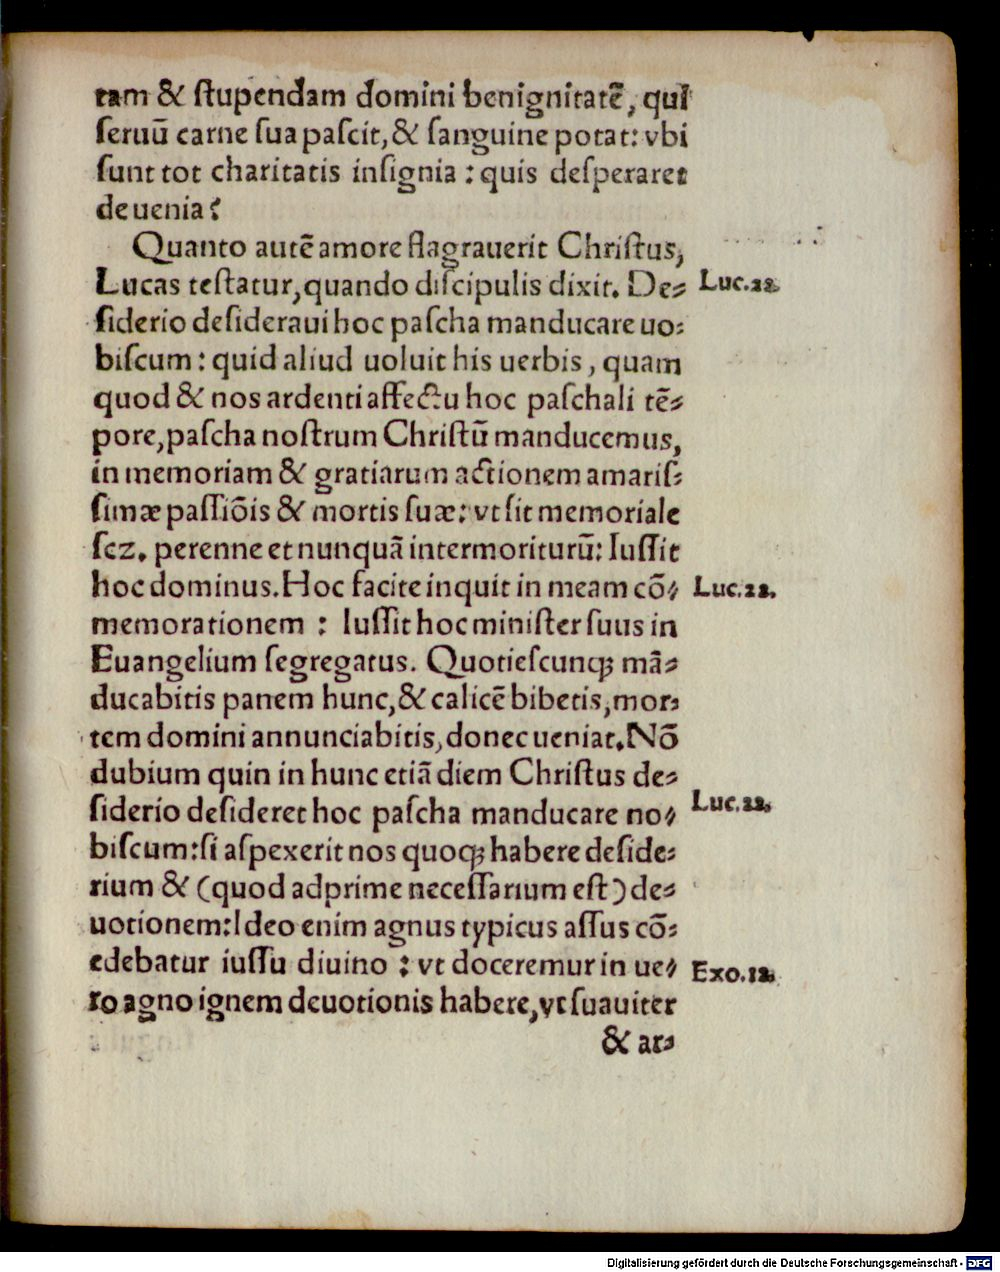 tam & ſtupendam domini benignitatē, qui
ſeruū carne ſua paſcit, & ſanguine potat: vbi
ſunt tot charitatis inſignia : quis deſperaret
de uenia?
Quanto autē amore flagrauerit Chriſtus,
Lucas teſtatur, quando diſcipulis dixit. De⸗ Luc.22.
ſiderio deſideraui hoc paſcha manducare uo⸗
biſcum : quid aliud uoluit his uerbis, quam
quod & nos ardenti affectu hoc paſchali tē⸗
pore, paſcha noſtrum Chriſtū manducemus,
in memoriam & gratiarum actionem amariſ⸗
ſimæ paſſiōis & mortis ſuæ: vt ſit memoriale
ſcz. perenne et nunquā intermoriturū: Iuſſit
hoc dominus. Hoc facite inquit in meam cō⸗ Luc.22.
memorationem : Iuſſit hoc miniſter ſuus in
Euangelium ſegregatus. Quotieſcunqꝫ mā⸗
ducabitis panem hunc, & calicē bibetis, mor⸗
tem domini annunciabitis, donec ueniat. Nō
dubium quin in hunc etiā diem Chriſtus de⸗
ſiderio deſideret hoc paſcha manducare no⸗ Luc.22.
biſcum: ſi aſpexerit nos quoqꝫ habere deſide⸗
rium & (quod adprime neceſſarium eſt) de⸗
uotionem: Ideo enim agnus typicus aſſus cō⸗
edebatur iuſſu diuino : vt doceremur in ue⸗ Exo.12.
ro agno ignem deuotionis habere, vt ſuauiter
& ar⸗
Digitalisierung gefördert durch die Deutsche Forschungsgemeinschaft - DFG